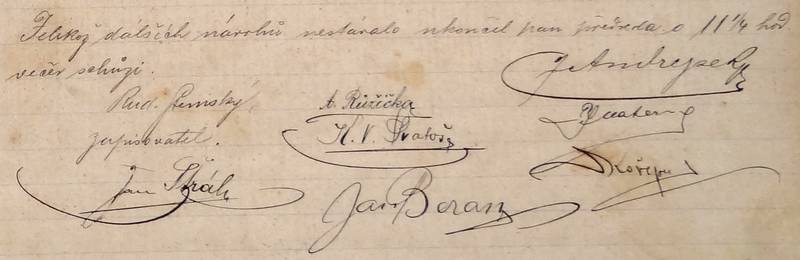 Jelikož dalších návrhů nestávalo ukončil pan předseda o 11 1/4 hod
večer schůzi.
Rud. Zemský,
zapisovatel.
A. Růžička
K. V. Svatoš
Jan
Jar Beran